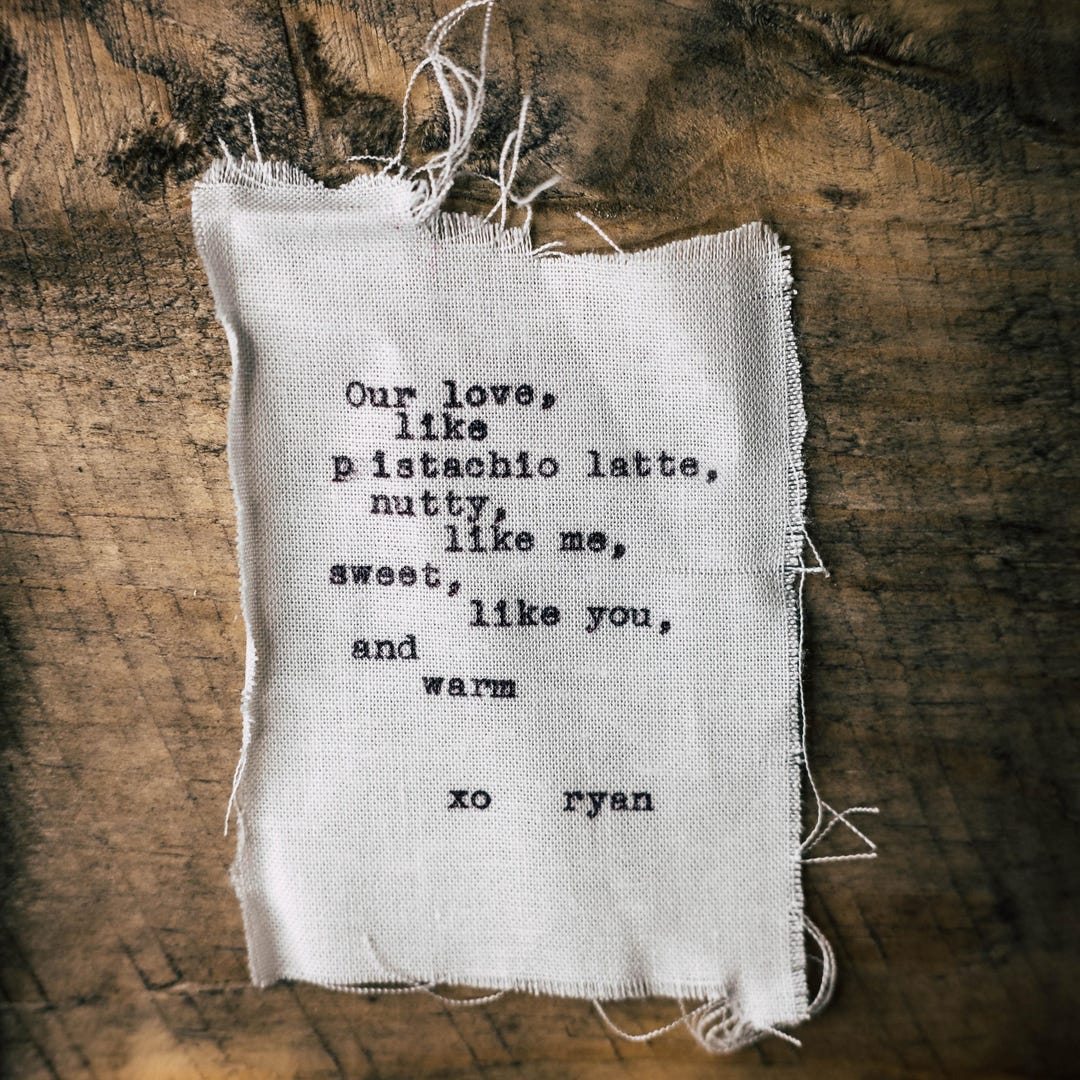 Our love,
like
pistachio latte,
nutty,
like me,
sweet,
like you,
and
warm
xo ryan